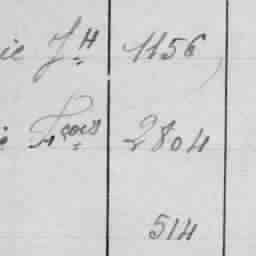 ie J.H 1156
Fçois 2804
514